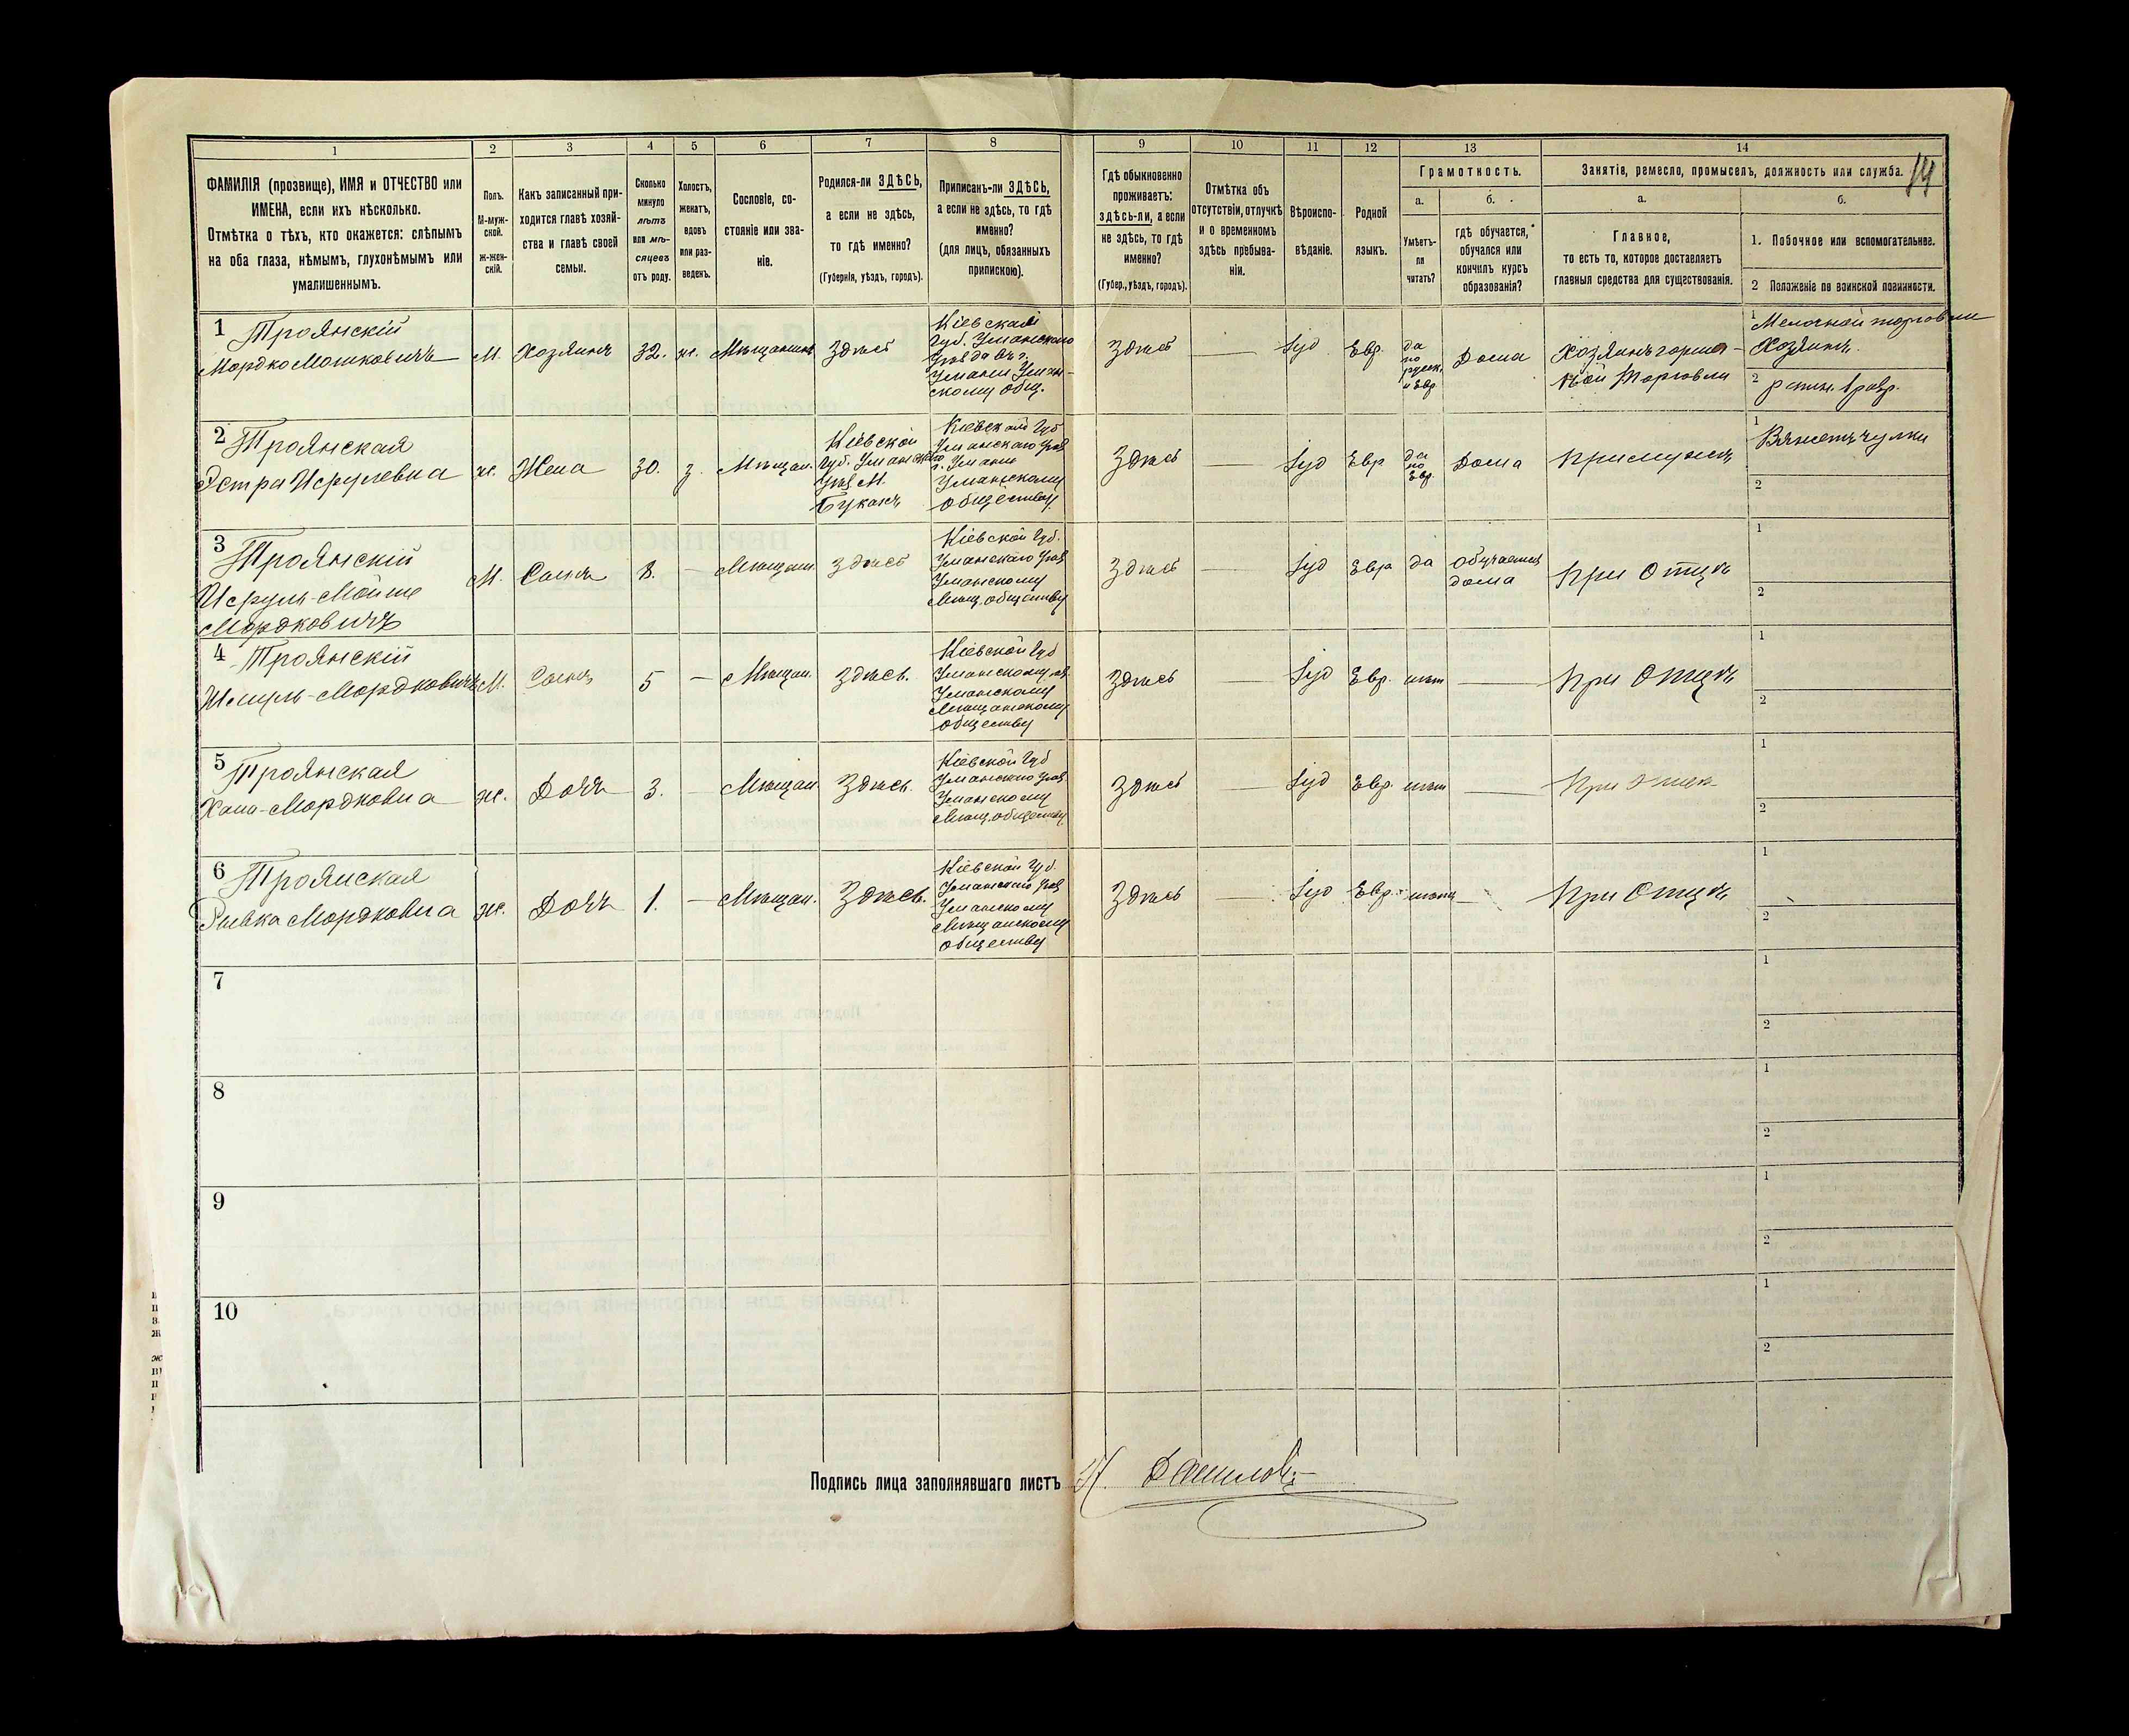 1 2 3 4 5 6 7 8 9 10 11 12 13 14
14
ФАМИЛІЯ (прозвище), ИМЯ и ОТЧЕСТВО или
ИМЕНА, если ихъ нѣсколько.
Отмѣтка о тѣхъ, кто окажется: слѣпымъ
на оба глаза, нѣмымъ, глухонѣмымъ или
умалишеннымъ.
Полъ.
М-муж-
ской.
Ж-жен-
скій.
Какъ записанный при-
ходится главѣ хозяй-
ства и главѣ своей
семьи.
Сколько
минуло
лѣтъ
или мѣ-
сяцевъ
отъ роду.
Холостъ,
женатъ,
вдовъ
или раз-
веденъ.
Сословіе, со-
стояніе или зва-
ніе.
Родился-ли ЗДѢСЬ,
а если не здѣсь,
то гдѣ именно?
(Губернія, уѣздъ, городъ).
Приписанъ-ли ЗДѢСЬ,
а если не здѣсь, то гдѣ
именно?
(для лицъ, обязанныхъ
припискою).
Гдѣ обыкновенно
проживаетъ:
здѣсь-ли, а если
не здѣсь, то гдѣ
именно?
(Губер., уѣздъ, городъ).
Отмѣтка объ
отсутствіи, отлучкѣ
и о временномъ
здѣсь пребыва-
ніи.
Вѣроиспо-
вѣданіе.
Родной
языкъ.
Грамотность.
а.
Умѣетъ-
ли
читать?
б.
гдѣ обучается,
обучался или
кончилъ курсъ
образованія?
Занятія, ремесло, промыселъ, должность или служба.
а.
Главное,
то есть то, которое доставляетъ
главныя средства для существованія.
б.
1. Побочное или вспомогательное.
2 Положеніе по воинской повинности.
1 Троянскій
Мордко Мошковичъ
М.
Хозяинъ
32.
ж.
Мѣщанинъ
Здѣсь
Кіевской
Губ. Уманского
Уѣзда въ г.
Умани Уман-
скому общ.
Здѣсь
—
Іуд
Евр.
да
по
русск.
и Евр.
Дома
Хозяинъ
вой торговли
1 Мелочной торговли
Хозяинъ.
2
2 Троянская
Эстра Исрулевна
ж.
Жена
30.
з.
Мѣщан.
Кіевской
Губ. Уманскаго
Уѣз. М.
Букахъ
Кіевской Губ
Уманскаго Уѣз
г. Умани
Уманскому
обществу.
Здѣсь
—
Іуд
Евр
да
по
Евр.
Дома
При мужѣ
1 Вяжетъ чулки
2
3 Троянскій
Исруль-Мойше
Мордковичъ
М.
Сынъ
8.
—
Мѣщан.
Здѣсь
Кіевской Губ.
Уманскаго Уѣз
Уманскому
Мѣщ. обществу
Здѣсь
—
Іуд
Евр
да
обучается
дома
При Отцѣ
1
2
4 Троянскій
Шмуль-Мордковичъ
М.
Сынъ
5
—
Мѣщан.
Здѣсь.
Кіевской Губ
Уманскому уѣз
Уманскому
Мѣщанскому
обществу
Здѣсь
—
Іуд
Евр.
нѣт
—
При Отцѣ
1
2
5 Троянская
Хана-Мордковна
ж.
Дочь
3.
—
Мѣщан
Здѣсь.
Кіевской Губ
Уманскаго Уѣз
Уманскому
Мѣщ. обществу
Здѣсь
—
Іуд
Евр.
нѣт
—
При Отцѣ
1
2
6 Троянская
Рывка Мордковна
ж.
Дочь
1.
—
Мѣщан.
Здѣсь.
Кіевской Губ.
Уманскаго Уѣз
Уманскому
Мѣщанскому
обществу
Здѣсь
—
Іуд
Евр.
нѣтъ
—
При Отцѣ
1
2
7
1
2
8
1
2
9
1
2
10
1
2
Подпись лица заполнявшаго листъ